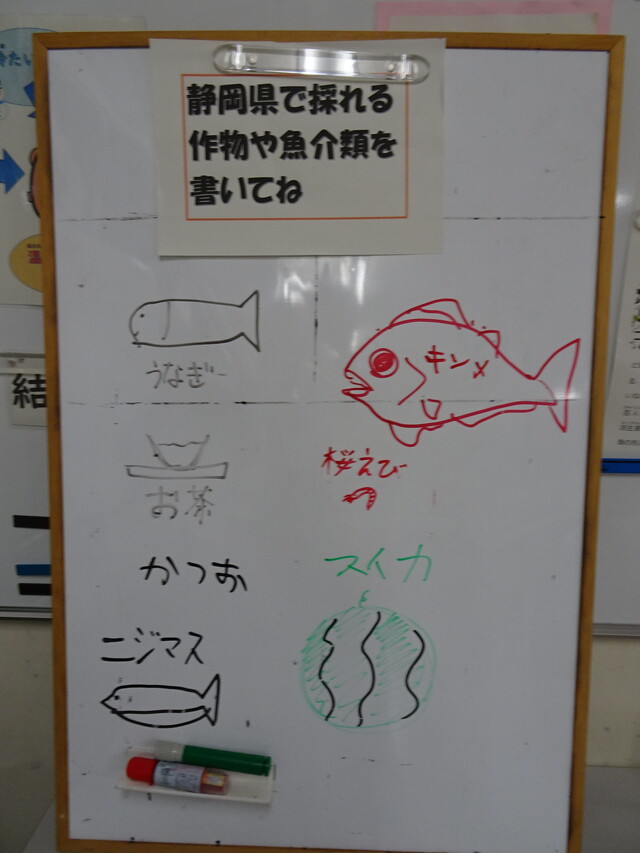 静岡県で採れる
作物や魚介類を
書いてね
うなぎ
キンメ
お茶
桜えび
かつお
スイカ
ニジマス
結